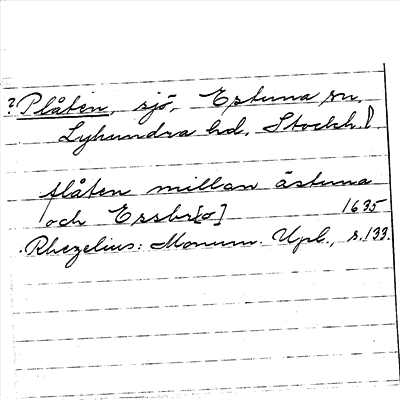 ? Plåten, sjö, Estuna sn.
Lyhundra hd, Stockh. l.
flåten millan ästuna
och Essbr[o] 1635
Rhezelius: Monum. Upl., s. 133.